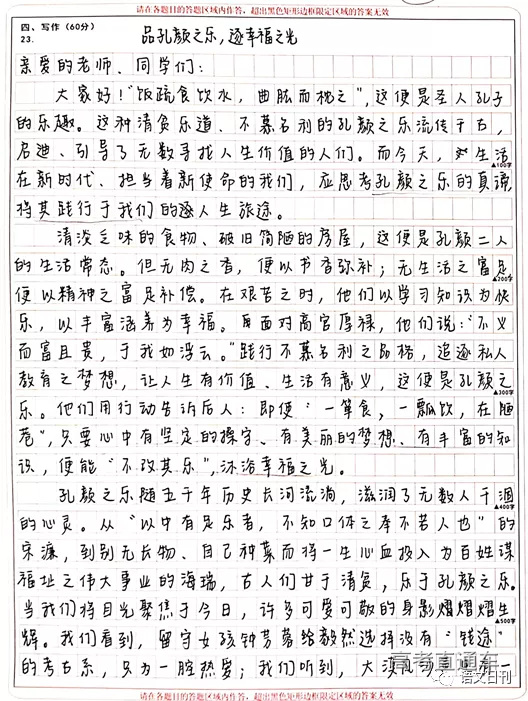 请在各题目的答题区域内作答，超出黑色矩形边框限定区域的答案无效
四、写作（60分）
23.
品孔颜之乐，逐幸福之光
亲爱的老师、同学们：
大家好！“饭疏食饮水，曲肱而枕之”，这便是圣人孔子
的乐趣。这种清贫乐道、不慕名利的孔颜之乐流传千古，
启迪、引导了无数寻找人生价值的人们。而今天，生活
▲100字
在新时代、担当着新使命的我们，应思考孔颜之乐的真谛，
将其践行于我们的逐人生旅途。
清淡乏味的食物、破旧简陋的房屋，这便是孔颜二人
的生活常态。但无肉之香，便以书香弥补；无生活之富足
▲200字
便以精神之富足补偿。在艰苦之时，他们以学习知识为快
乐，以丰富涵养为幸福。面对高官厚禄，他们说：“不义
而富且贵，于我如浮云。”践行不慕名利之品格，追逐私人
教育之梦想，让人生有价值、生活有意义，这便是孔颜之
▲300字
乐。他们用行动告诉后人：即使“一箪食，一瓢饮，在陋
巷”，只要心中有坚定的操守、有美丽的梦想、有丰富的知
识，便能“不改其乐”，沐浴幸福之光。
孔颜之乐随五千年历史长河流淌，滋润了无数人干涸
▲400字
的心灵。从“以中有足乐者，不知口体之奉不若人也”的
宋濂，到别无长物、自己种菜而将一生心血投入为百姓谋
福祉之伟大事业的海瑞，古人们甘于清贫，乐于孔颜之乐。
当我们将目光聚焦于今日，许多可爱可敬的身影熠熠生
▲500字
辉。我们看到，留守女孩钟芳蓉毅然选择没有“钱途”
的考古系，只为一腔热爱；我们听到，大漠
高考直通车
语文日刊
请在各题目的答题区域内作答，超出黑色矩形边框限定区域的答案无效